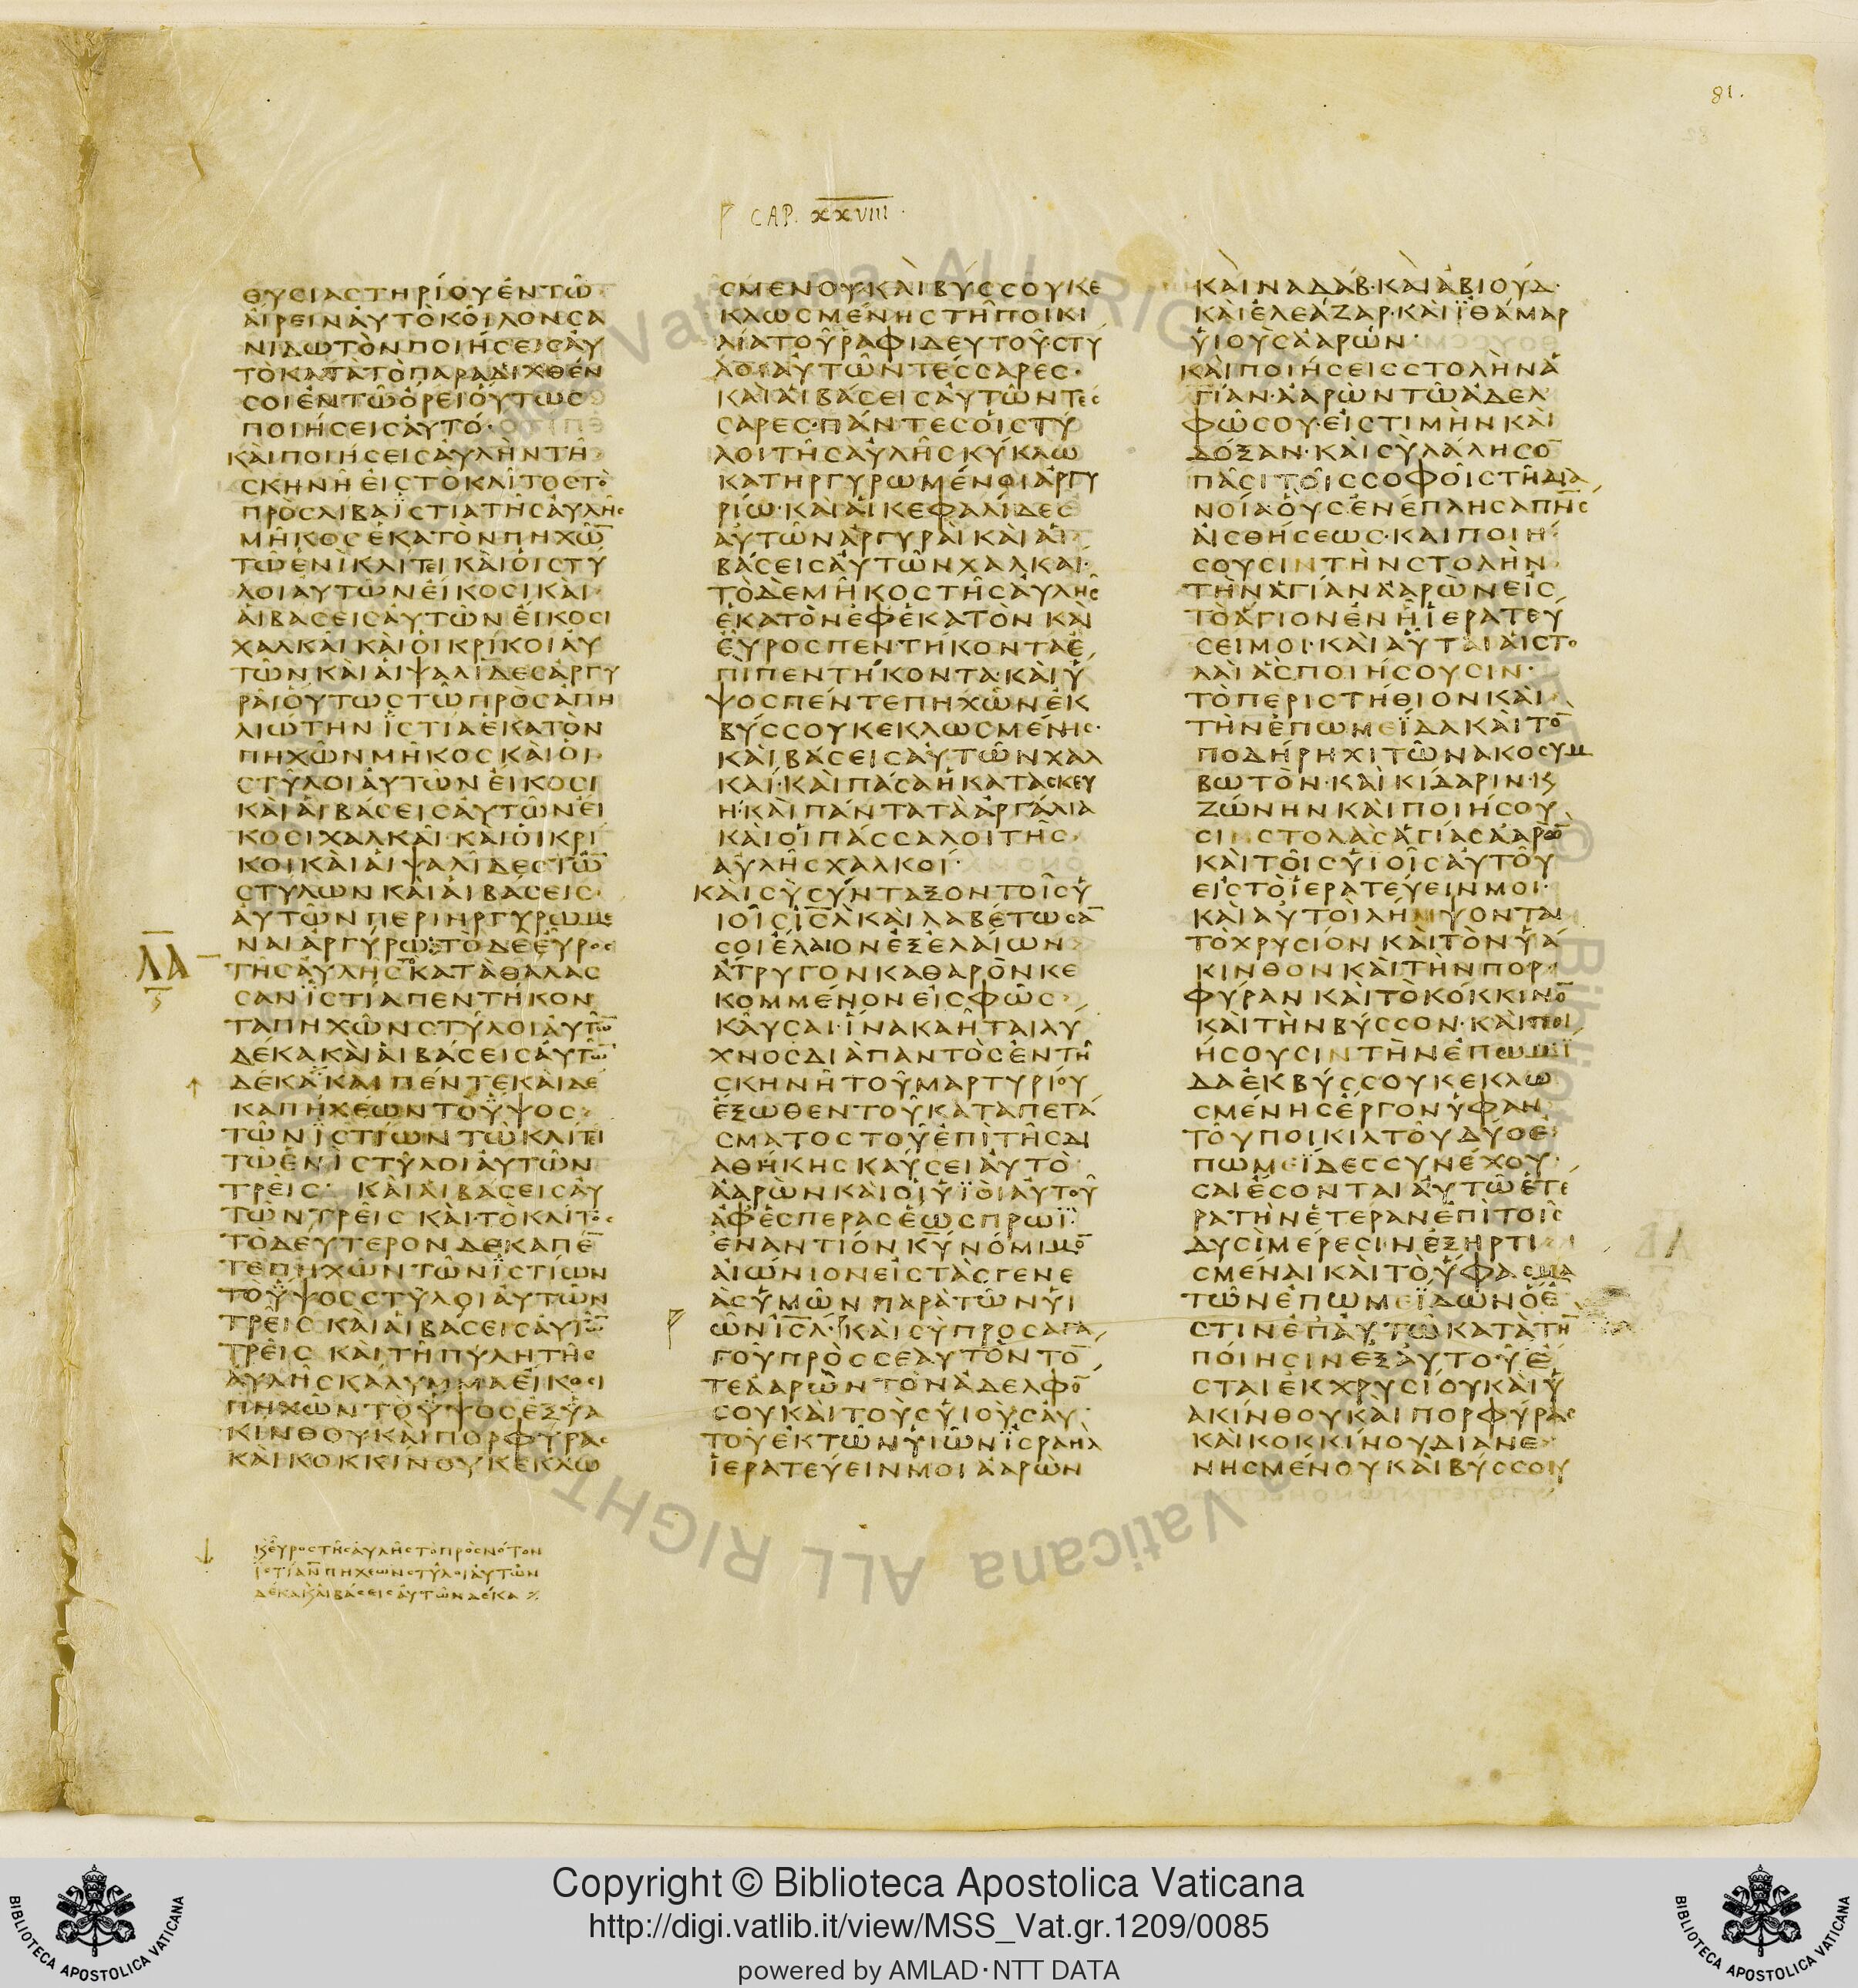 81.
CAP. XXVIII.
ΘΥΣΙΑΣΤΗΡΊΟΥ ἘΝ ΤΩ͂
ΑἼΡΕΙΝ ἈΥΤΌ ΚΟΙ͂ΛΟΝ ΣΑ
ΝΙΔΩΤῸΝ ΠΟΙΉΣΕΙΣ ἈΥ
ΤῸ ΚΑΤᾺ ΤῸ ΠΑΡΑΔΙΧΘΈΝ
ΣΟΙ ἘΝ ΤΩ͂ ὌΡΕΙ ὍΥΤΩΣ
ΠΟΙΉΣΕΙΣ ἈΥΤΌ·
ΚΑῚ ΠΟΙΉΣΕΙΣ ἈΥΛῊΝ ΤΗ͂
ΣΚΗΝΗ͂ ἘΙΣ ΤῸ ΚΛΊΤΟΣ ΤῸ
ΠΡῸΣ ΛΙΒΑ ἹΣΤΙΑ ΤΗ͂Σ ἈΥΛΗ͂Σ
ΜΗ͂ΚΟΣ ἙΚΑΤῸΝ ΠΗΧΩ͂Ν̅
ΤΩ͂ ἙΝῚ ΚΛΊΤΕΙ ΚΑῚ ΟἹ ΣΤΥ͂
ΛΟΙ ἈΥΤΩ͂Ν ἘΊΚΟΣΙ ΚΑῚ
ἉΙ ΒΆΣΕΙΣ ἈΥΤΩ͂Ν ἘΊΚΟΣΙ
ΧΑΛΚΑΙ͂ ΚΑῚ ὉΙ ΚΡΊΚΟΙ ἈΥ
ΤΩ͂Ν ΚΑῚ ἉΙ ΨΑΛΊΔΕΣ ἈΡΓΥ
ΡΑΙ͂ ὍΥΤΩΣ ΤΩ͂ ΠΡῸΣ ἈΠΗ
ΛΙΏΤΗΝ ἹΣΤΙΑ ἙΚΑΤῸΝ
ΠΗΧΩ͂Ν ΜΗ͂ΚΟΣ ΚΑῚ ὉΙ
ΣΤΥ͂ΛΟΙ ἈΥΤΩ͂Ν ἘΊΚΟΣΙ
ΚΑῚ ἉΙ ΒΆΣΕΙΣ ἈΥΤΩ͂Ν ἘΊ
ΚΟΣΙ ΧΑΛΚΑΙ͂· ΚΑῚ ὉΙ ΚΡΊ
ΚΟΙ ΚΑῚ ἉΙ ΨΑΛΊΔΕΣ ΤΩ͂Ν̅
ΣΤΎΛΩΝ ΚΑῚ ἉΙ ΒΆΣΕΙΣ
ἈΥΤΩ͂Ν ΠΕΡΙΗΡΓΥΡΩΜΕ
ΝΑΙ ἈΡΓΎΡΩ· ΤῸ ΔΕ ΕΥ͂ΡΟΣ
ΤΗ͂Σ ἈΥΛΗ͂Σ ΤΟ ΚΑΤᾺ ΘΆΛΑΣ
ΣΑΝ ἹΣΤΙΑ ΠΕΝΤΉΚΟΝ
ΤΑ ΠΗΧΩ͂Ν ΣΤΥ͂ΛΟΙ ἈΥΤΩ͂Ν̅
ΔΈΚΑ ΚΑῚ ἉΙ ΒΆΣΕΙΣ ἈΥΤΩ͂Ν̅
ΔΈΚΑ ΚΑΙ ΠΈΝΤΕ ΚΑῚ ΔΕ
ΚΑ ΠΉΧΕΩΝ ΤῸ ὝΨΟΣ
ΤΩ͂Ν ἹΣΤΊΩΝ ΤΩ͂ ΚΛΊΤΕΙ
ΤΩ͂ ἙΝῚ ΣΤΥ͂ΛΟΙ ἈΥΤΩ͂Ν
ΤΡΕΙ͂Σ· ΚΑῚ ἉΙ ΒΆΣΕΙΣ ἈΥ
ΤΩ͂Ν ΤΡΕΙ͂Σ ΚΑῚ ΤῸ ΚΛΊΤΟΣ
ΤῸ ΔΕΎΤΕΡΟΝ ΔΕΚΑΠΈΝ̅
ΤΕ ΠΗΧΩ͂Ν ΤΩ͂Ν ἹΣΤΊΩΝ
ΤῸ ὝΨΟΣ ΣΤΥ͂ΛΟΙ ἈΥΤΩ͂Ν
ΤΡΕΙ͂Σ ΚΑῚ ἉΙ ΒΆΣΕΙΣ ἈΥΤΩ͂Ν̅
ΤΡΕΙ͂Σ ΚΑῚ ΤΗ͂ ΠΎΛΗ ΤΗ͂Σ
ἈΥΛΗ͂Σ ΚΆΛΥΜΜΑ ἘΊΚΟΣΙ
ΠΗΧΩ͂Ν ΤῸ ὝΨΟΣ ἘΞ ὙΑ
ΚΙΝΘΟΥ ΚΑῚ ΠΟΡΦΎΡΑΣ
ΚΑῚ ΚΟΚΚΊΝΟΥ ΚΕΚΛΩ
Λ̅Α̅
Ϗ ΕΥ͂ΡΟΣ ΤΗ͂Σ ἈΥΛΗ͂Σ ΤῸ ΠΡῸΣ ΝΌΤΟΝ
ἹΣΤΊΑ Ν̅ ΠΗΧΕΩΝ ΣΤΥ͂ΛΟΙ ἈΥΤΩ͂Ν
ΔΈΚΑ Ϗ ἉΙ ΒΆΣΕΙΣ ἈΥΤΩ͂Ν ΔΈΚΑ
ΣΜΕΝΟΥ· ΚΑῚ ΒΎΣΣΟΥ ΚΕ
ΚΛΩΣΜΈΝΗΣ ΤΗ͂ ΠΟΙΚΙ
ΛΊΑ ΤΟΥ͂ ῬΑΦΙΔΕΥΤΟΥ͂· ΣΤΥ͂
ΛΟΙ ἈΥΤΩ͂Ν ΤΈΣΣΑΡΕΣ·
ΚΑῚ ἉΙ ΒΆΣΕΙΣ ἈΥΤΩ͂Ν ΤΕΣ
ΣΑΡΕΣ· ΠΆΝΤΕΣ ὉΙ ΣΤΥ͂
ΛΟΙ ΤΗ͂Σ ἈΥΛΗ͂Σ ΚΎΚΛΩ
ΚΑΤΗΡΓΥΡΩΜΈΝΟΙ ἈΡΓΥ
ΡΊΩ· ΚΑῚ ἉΙ ΚΕΦΑΛΊΔΕΣ
ἈΥΤΩ͂Ν ἈΡΓΥΡΑΙ͂ ΚΑῚ ἉΙ
ΒΆΣΕΙΣ ἈΥΤΩ͂Ν ΧΑΛΚΑΙ͂·
ΤῸ ΔῈ ΜΗ͂ΚΟΣ ΤΗ͂Σ ἈΥΛΗ͂Σ
ἙΚΑΤῸΝ ἘΦ ἙΚΑΤῸΝ ΚΑῚ
ΕΥ͂ΡΟΣ ΠΕΝΤΉΚΟΝΤΑ Ἐ
ΠῚ ΠΕΝΤΉΚΟΝΤΑ· ΚΑῚ Ὕ
ΨΟΣ ΠΈΝΤΕ ΠΗΧΩ͂Ν ἘΚ
ΒΎΣΣΟΥ ΚΕΚΛΩΣΜΈΝΗΣ·
ΚΑῚ ΒΆΣΕΙΣ ἈΥΤΩ͂Ν ΧΑΛ
ΚΑΙ͂· ΚΑῚ ΠΑ͂ΣΑ Ἡ ΚΑΤΑΣΚΕΥ
Ή· ΚΑῚ ΠΆΝΤΑ ΤᾺ ἘΡΓΑΛΙΑ
ΚΑῚ ὉΙ ΠΆΣΣΑΛΟΙ ΤΗ͂Σ
ἈΥΛΗ͂Σ ΧΑΛΚΟΙ͂·
ΚΑῚ ΣῪ ΣΎΝΤΑΞΟΝ ΤΟΙ͂Σ Ὑ
ΙΟΙ͂Σ Ι̅Σ̅Λ̅ ΚΑῚ ΛΑΒΈΤΩΣΑΝ̅
ΣΟΙ ἜΛΑΙΟΝ ἘΞ ἘΛΑΙΩ͂Ν
ἈΤΡΥΓΟΝ ΚΑΘΑΡῸΝ ΚΕ
ΚΟΜΜΈΝΟΝ ἘΙΣ ΦΩ͂Σ
ΚΑΥ͂ΣΑΙ· ἽΝΑ ΚΑΗ͂ΤΑΙ ΛΥ
ΧΝΟΣ ΔΙᾺ ΠΑΝΤῸΣ ἘΝ ΤΗ͂
ΣΚΗΝΗ͂ ΤΟΥ͂ ΜΑΡΤΥΡΊΟΥ
ἜΞΩΘΕΝ ΤΟΥ͂ ΚΑΤΑΠΕΤΆ
ΣΜΑΤΟΣ ΤΟΥ͂ ἘΠῚ ΤΗ͂Σ ΔΙ
ΑΘΉΚΗΣ ΚΑΎΣΕΙ ἈΥΤῸ
ἈΑΡῺΝ ΚΑῚ ὉΙ ὙΪΟῚ ἈΥΤΟΥ͂
ἈΦ ἙΣΠΈΡΑΣ ἝΩΣ ΠΡΩΪ̀
ἘΝΑΝΤΊΟΝ Κ̅Υ̅ ΝΌΜΙΜΟΝ̅
ΑἸΏΝΙΟΝ ἘΙΣ ΤᾺΣ ΓΕΝΕ
ᾺΣ ὙΜΩ͂Ν ΠΑΡᾺ ΤΩ͂Ν ὙΙ
Ω͂Ν Ι̅Σ̅Λ̅· ΚΑῚ ΣῪ ΠΡΟΣΑΓΑ
ΓΟΥ͂ ΠΡῸΣ ΣΕΑΥΤῸΝ ΤΌΝ̅
ΤΕ ἈΑΡῺΝ ΤῸΝ ἈΔΕΛΦΌΝ̅
ΣΟΥ ΚΑῚ ΤΟῪΣ ὙΙΟῪΣ ἈΥ
ΤΟΥ͂ ἘΚ ΤΩ͂Ν ὙΙΩ͂Ν ἸΣΡΑΗΛ
ἹΕΡΑΤΕΎΕΙΝ ΜΟΙ ἈΑΡῺΝ
ΚΑῚ ΝΑΔΆΒ· ΚΑῚ ἈΒΙΟΎΔ·
ΚΑῚ ἘΛΕΆΖΑΡ· ΚΑῚ ἸΘΆΜΑΡ
ὙΙΟῪΣ ἈΑΡΏΝ·
ΚΑῚ ΠΟΙΉΣΕΙΣ ΣΤΟΛῊΝ Ἁ
ΓΊΑΝ· ἈΑΡῺΝ ΤΩ͂ ἈΔΕΛ
ΦΩ͂ ΣΟΥ· ἘΙΣ ΤΙΜῊΝ ΚΑῚ
ΔΌΞΑΝ· ΚΑῚ ΣῪ ΛΆΛΗΣΟΝ̅
ΠΑ͂ΣΙ ΤΟΙ͂Σ ΣΟΦΟΙ͂Σ ΤΗ͂ ΔΙΑ
ΝΟΊΑ· ὉΥΣ ἘΝΈΠΛΗΣΑ Π̅Ν̅Σ̅
ἈΙΣΘΉΣΕΩΣ· ΚΑῚ ΠΟΙΉ
ΣΟΥΣΙΝ ΤῊΝ ΣΤΟΛῊΝ
ΤῊΝ ἉΓΊΑΝ ἈΑΡῺΝ ἘΙΣ
ΤῸ ἍΓΙΟΝ ἘΝ Ἧ ἹΕΡΑΤΕΎ
ΣΕΙ ΜΟΙ· ΚΑῚ ἈΥΤΑΙ ἉΙ ΣΤΟ
ΛΑῚ ἋΣ ΠΟΙΉΣΟΥΣΙΝ·
ΤῸ ΠΕΡΙΣΤΉΘΙΟΝ ΚΑῚ
ΤῊΝ ἘΠΩΜΕΪ́ΔΑ ΚΑῚ ΤῸΝ̅
ΠΟΔΉΡΗ ΧΙΤΩ͂ΝΑ ΚΟΣΥΜ
ΒΩΤῸΝ· ΚΑῚ ΚΊΔΑΡΙΝ· Ϗ
ΖΏΝΗΝ ΚΑῚ ΠΟΙΉΣΟΥ
ΣΙΝ ΣΤΟΛᾺΣ ἉΓΊΑΣ ἈΑΡῺΝ̅
ΚΑῚ ΤΟΙ͂Σ ὙΙΟΙ͂Σ ἈΥΤΟΥ͂
ΕΙΣ ΤῸ ἹΕΡΑΤΕΎΕΙΝ ΜΟΙ·
ΚΑῚ ΑΥΤΟῚ ΛΉΜΨΟΝΤΑΙ
ΤῸ ΧΡΥΣΊΟΝ ΚΑῚ ΤῸΝ ὙΆ
ΚΙΝΘΟΝ ΚΑῚ ΤῊΝ ΠΟΡ
ΦΎΡΑΝ ΚΑῚ ΤῸ ΚΌΚΚΙΝΟΝ̅
ΚΑῚ ΤῊΝ ΒΎΣΣΟΝ· ΚΑῚ ΠΟΙ
ΉΣΟΥΣΙΝ ΤῊΝ ἘΠΩΜΪ
ΔΑ ἘΚ ΒΎΣΣΟΥ ΚΕΚΛΩ
ΣΜΈΝΗΣ ἜΡΓΟΝ ὙΦΑΝ
ΤΟΥ͂ ΠΟΙΚΙΛΤΟΥ͂ ΔΎΟ Ἐ
ΠΩΜΕΪ́ΔΕΣ ΣΥΝΈΧΟΥ
ΣΑΙ ἜΣΟΝΤΑΙ ἈΥΤΩ͂ ἙΤΕ
ΡΑ ΤῊΝ ἙΤΈΡΑΝ ἘΠῚ ΤΟΙ͂Σ
ΔΥΣῚ ΜΈΡΕΣΙΝ ἘΞΗΡΤΙ
ΣΜΈΝΑΙ ΚΑῚ ΤῸ ὝΦΑΣΜΑ
ΤΩ͂Ν ἘΠΩΜΕΪ́ΔΩΝ Ὅ Ἐ
ΣΤΙΝ ἘΠ ἈΥΤΩ͂ ΚΑΤᾺ ΤῊΝ̅
ΠΌΙΗΣΙΝ ἘΞ ἈΥΤΟΥ͂ Ἐ
ΣΤΑΙ ἘΚ ΧΡΥΣΊΟΥ ΚΑῚ Ὑ
ΑΚΊΝΘΟΥ ΚΑῚ ΠΟΡΦΎΡΑΣ
ΚΑῚ ΚΟΚΚΊΝΟΥ ΔΙΑΝΕ
ΝΗΣΜΈΝΟΥ ΚΑῚ ΒΎΣΣΟΥ
Copyright © Biblioteca Apostolica Vaticana
http://digi.vatlib.it/view/MSS_Vat.gr.1209/0085
powered by AMLAD·NTT DATA
BIBLIOTECA APOSTOLICA VATICANA
BIBLIOTECA APOSTOLICA VATICANA